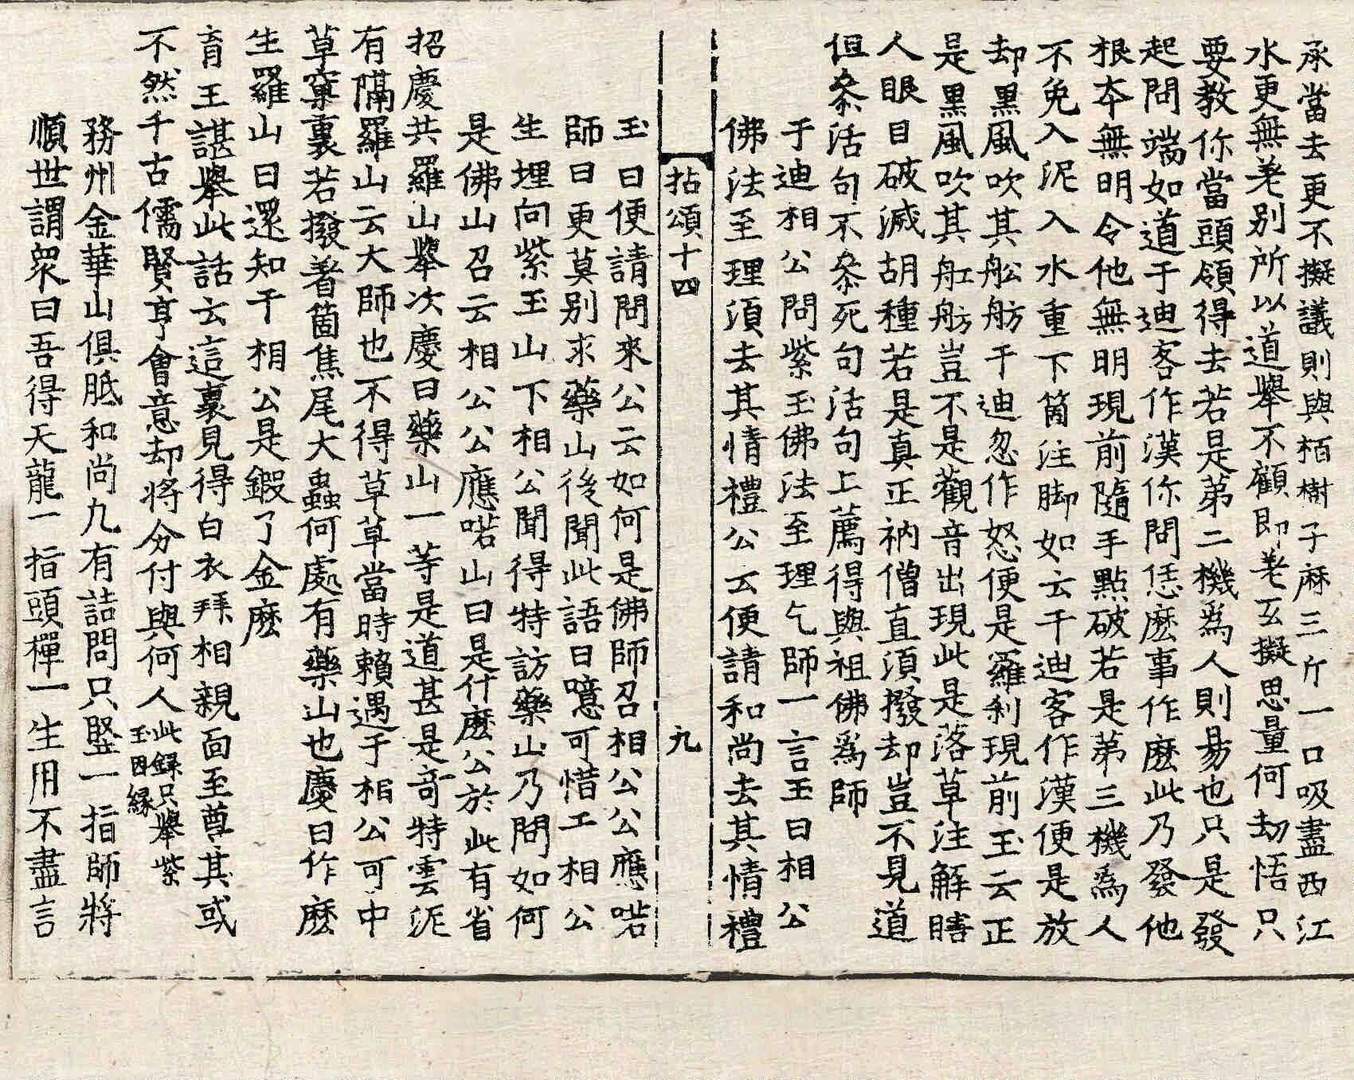 承當去更不擬議則與栢樹子麻三斤一口吸盡西江
水更無差別所以道舉不顧即差互擬思量何劫悟只
要教你當頭領得去若是第二機爲人則易也只是發
起問端如道于迪客作漢你問恁麽事作麽此乃發他
根本無明令他無明現前隨手點破若是第三機爲人
不免入泥入水重下箇注脚如云于迪客作漢便是放
却黑風吹其舩舫于迪忽作怒便是羅刹現前玉云正
是黑風吹其舡舫豈不是觀音出現此是落草注解瞎
人眼目破滅胡種若是真正衲僧直須撥却豈不見道
但叅活句不叅死句活句上薦得與祖佛爲師
于迪相公問紫玉佛法至理乞師一言玉曰相公
佛法至理須去其情禮公云便請和尚去其情禮
拈頌十四 九
玉曰便請問來公云如何是佛師召相公公應喏
師曰更莫別求藥山後聞此語曰噫可惜工相公
生埋向紫玉山下相公聞得特訪藥山乃問如何
是佛山召云相公公應喏山曰是什麽公於此有省
招慶共羅山舉次慶曰藥山一等是道甚是竒特雲泥
有隔羅山云大師也不得草草當時賴遇于相公可中
草窠裏若撥著箇焦尾大蟲何處有藥山也慶曰作麽
生羅山曰還知于相公是鍛了金麽
育王諶舉此話云這裏見得白衣拜相親面至尊其或
不然千古儒賢亨會意却將分付與何人此錄只舉紫
玉因緣
務州金華山俱胝和尚凡有詰問只竪一指師將
順世謂衆曰吾得天龍一指頭禪一生用不盡言